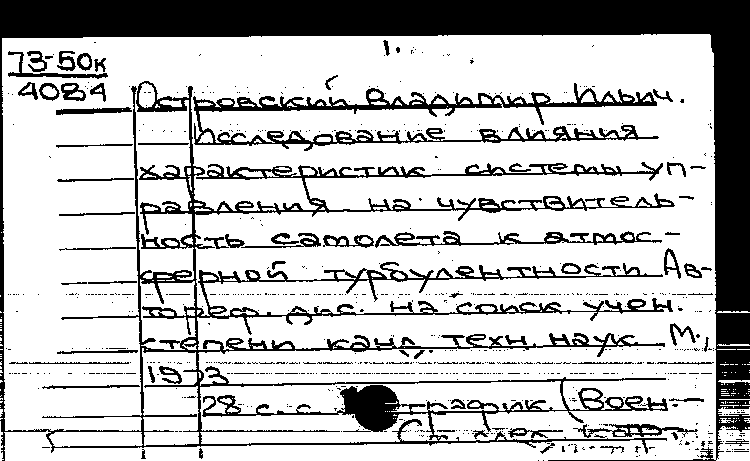 1.
73-50к
4084
Островский, Владимир Ильич.
Исследование влияния
характеристик системы уп-
равления на чувствитель-
ность самолета к атмос-
ферной турбулентности. Ав-
тореф. дис. на соиск. учен.
степени канд. техн. наук. М.,
1973
28 с. с график. (Воен.-
См. след. карт.